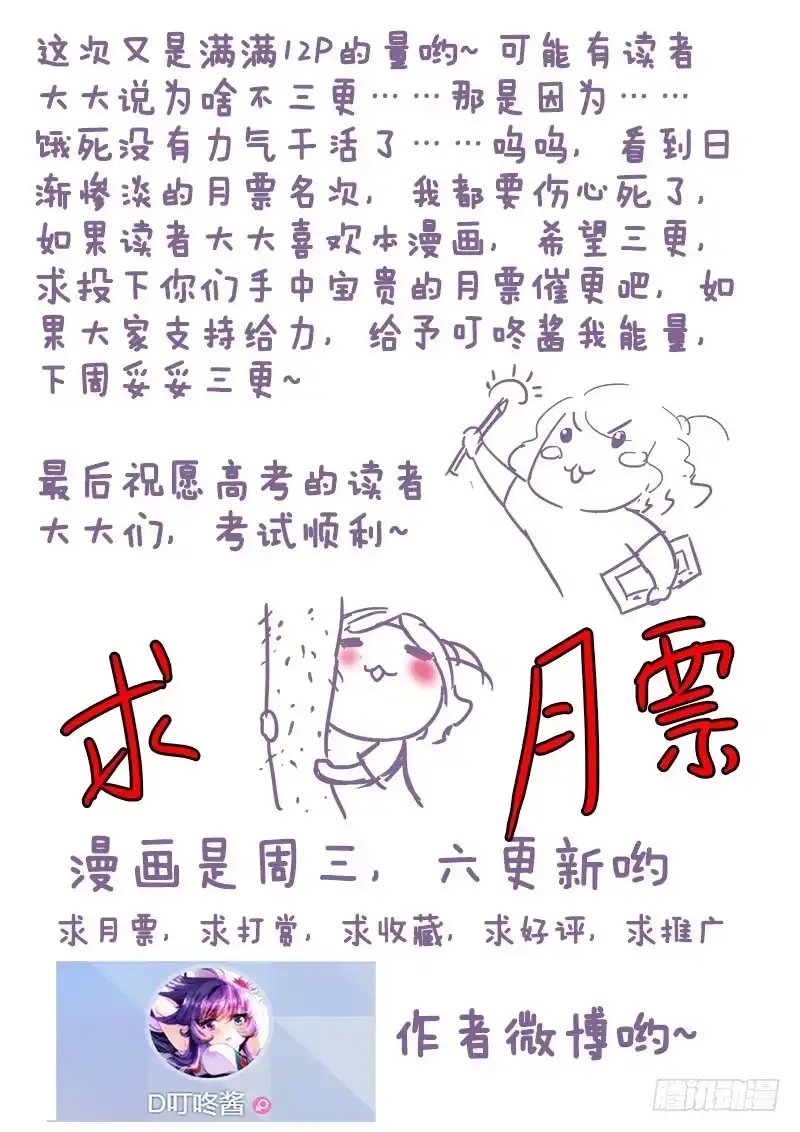 这次又是满满12P的量哟~ 可能有读者
大大说为啥不三更……那是因为……
饿死没有力气干活了……呜呜, 看到日
渐惨淡的月票名次, 我都要伤心死了,
如果读者大大喜欢本漫画, 希望三更,
求投下你们手中宝贵的月票催更吧, 如
果大家支持给力, 给予叮咚酱我能量,
下周妥妥三更~
最后祝愿高考的读者
大大们, 考试顺利~
求 月票
漫画是周三, 六更新哟
求月票, 求打赏, 求收藏, 求好评, 求推广
作者微博哟~
D叮咚酱
腾讯动漫